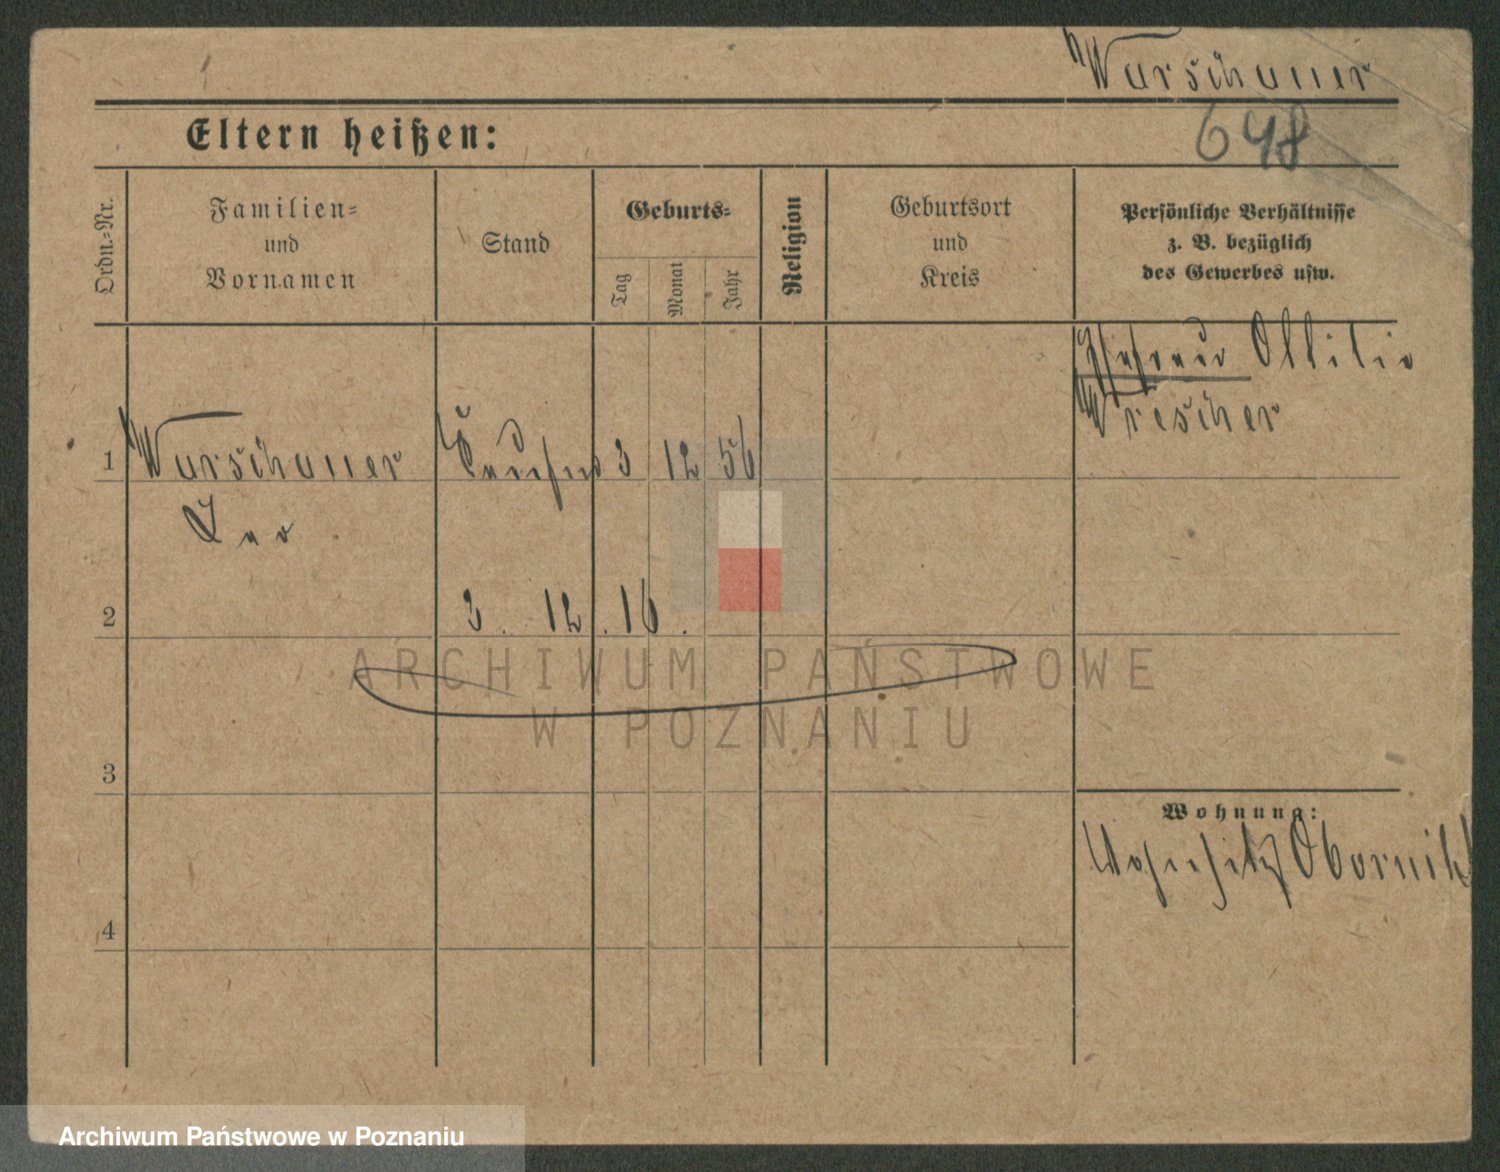 Warschauer
648
Eltern heißen:
Ordn.-Nr.
Familien-
und
Vornamen
Stand
Geburts-
Tag
Monat
Jahr
Religion
Geburtsort
und
Kreis
Persönliche Verhältnisse
z. B. bezüglich
des Gewerbes usw.
Ehefrau Ottilie
Wrescher
1 Warschauer 3 12 56
Leo
2 3. 12. 16.
ARCHIWUM PAŃSTWOWE
W POZNANIU
3
Wohnung:
Obornik
4
Archiwum Państwowe w Poznaniu